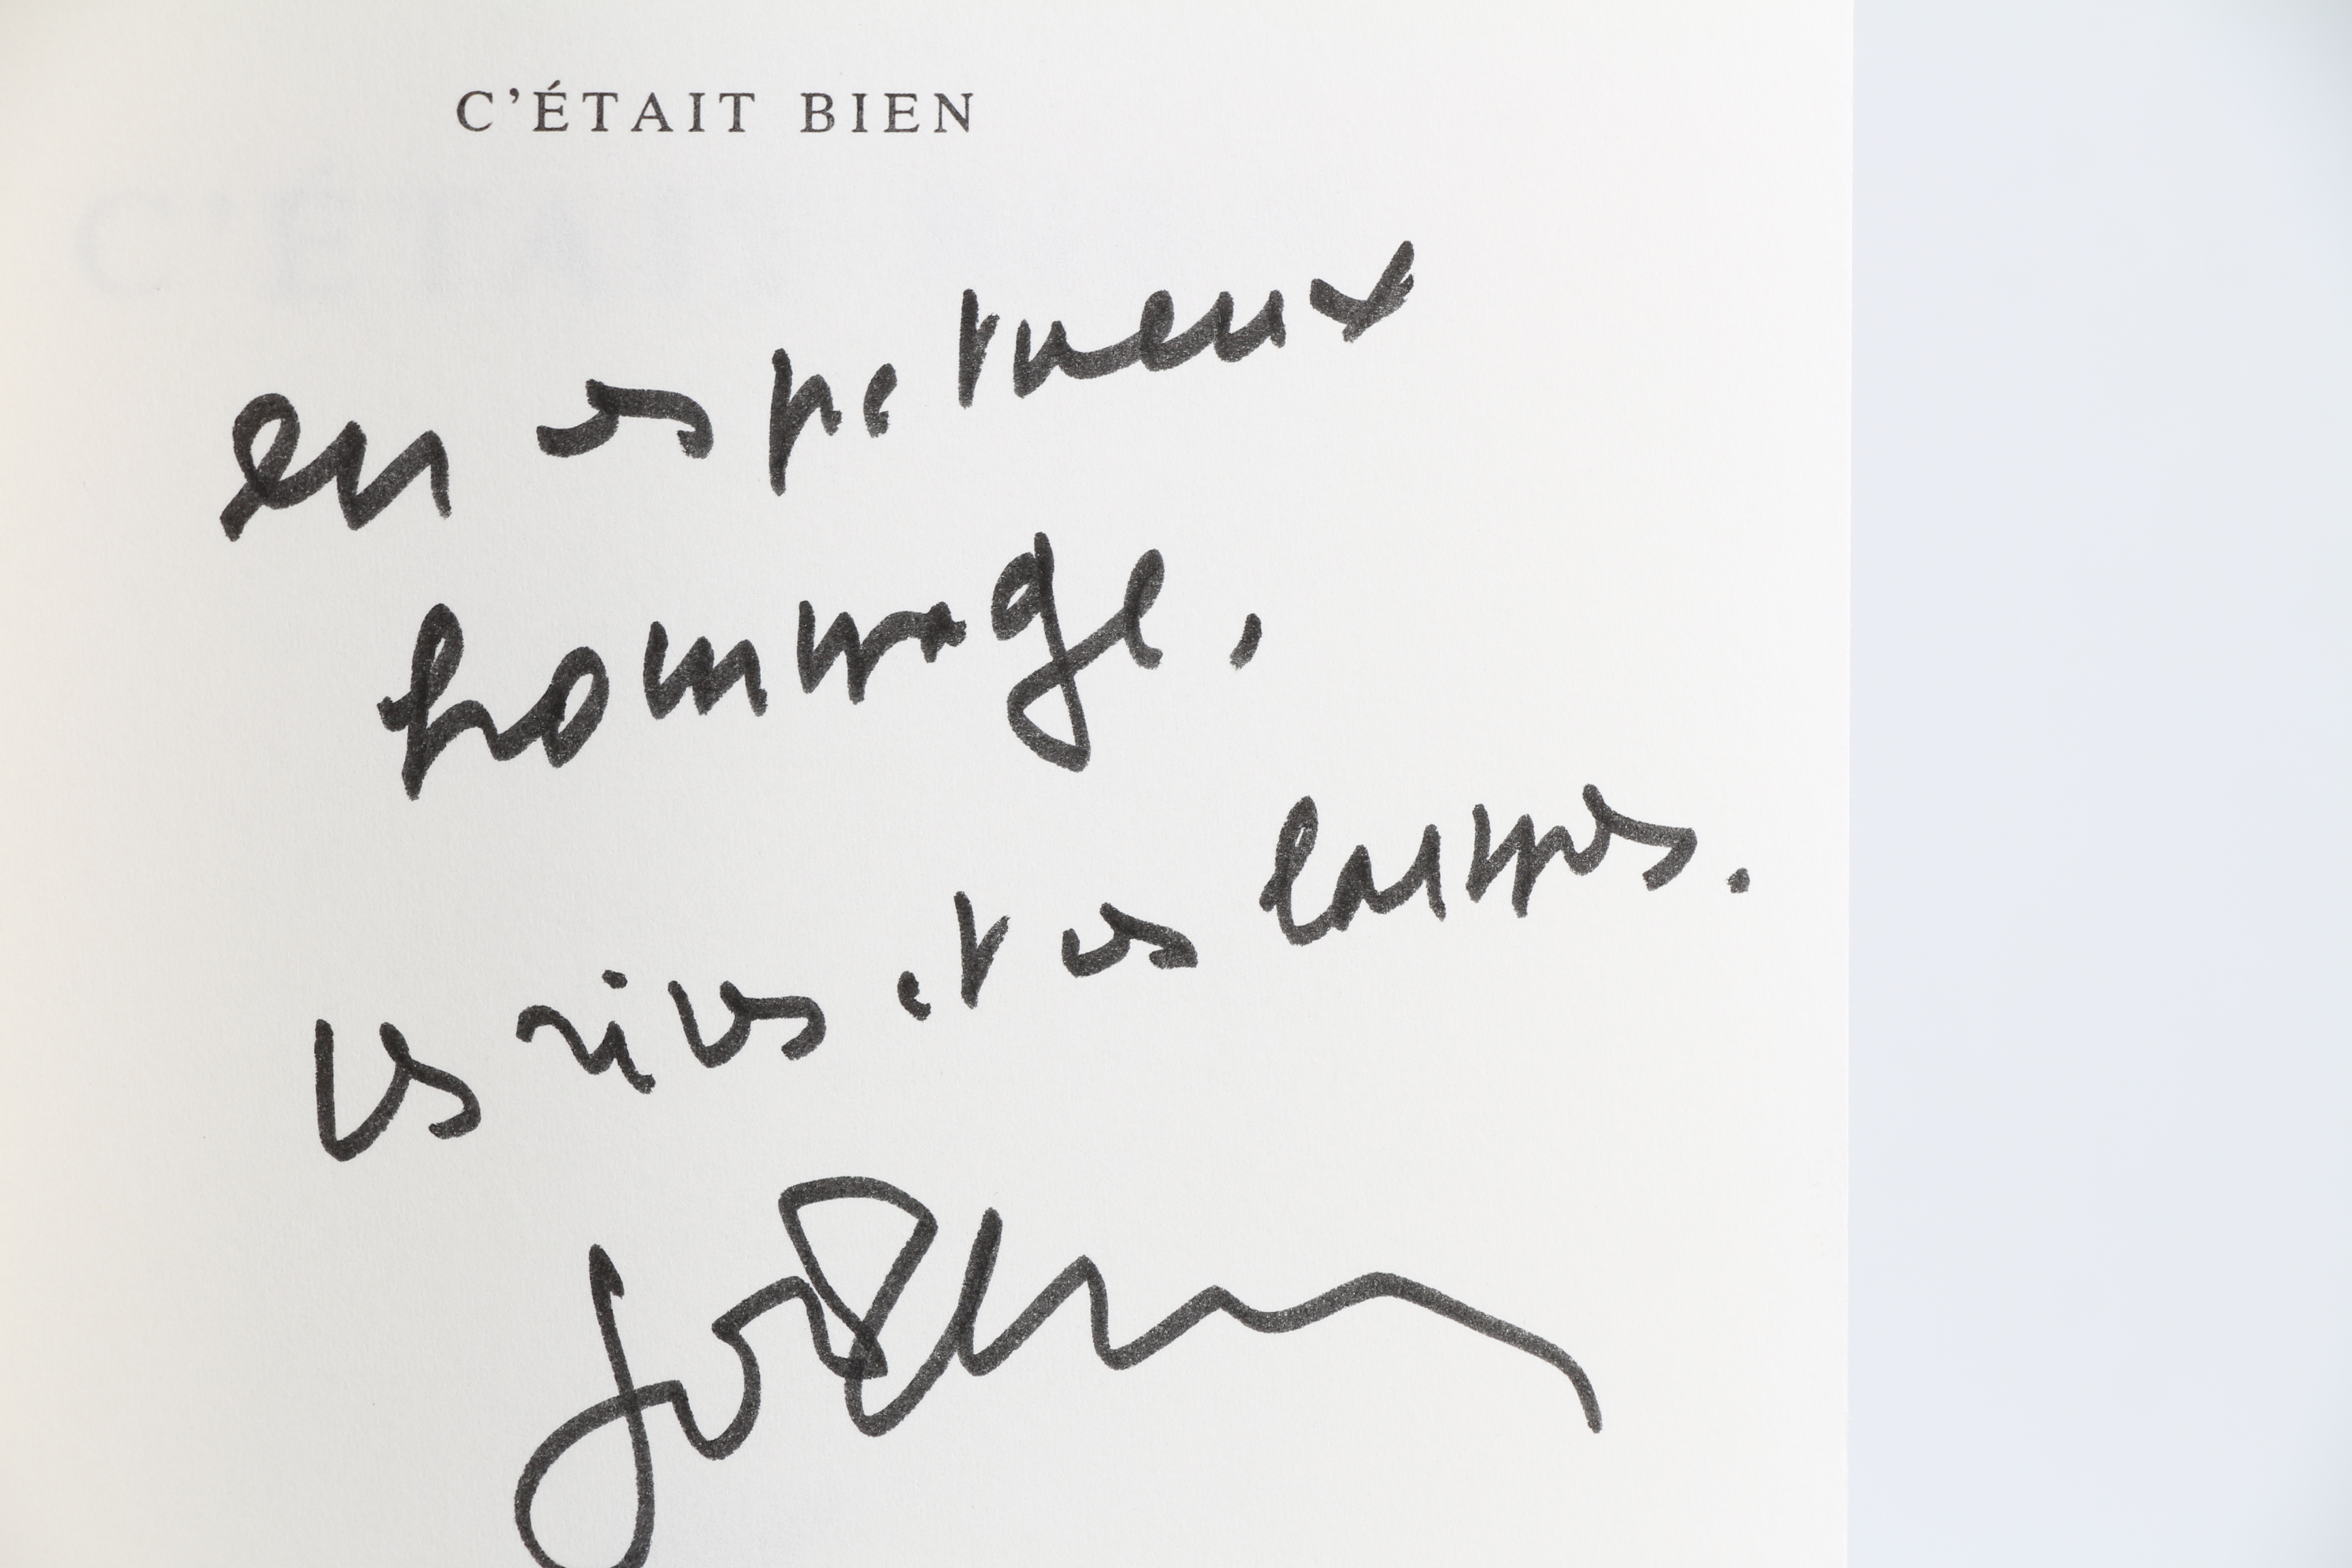 C'ÉTAIT BIEN
en respectueux
hommage,
les rires et les larmes.